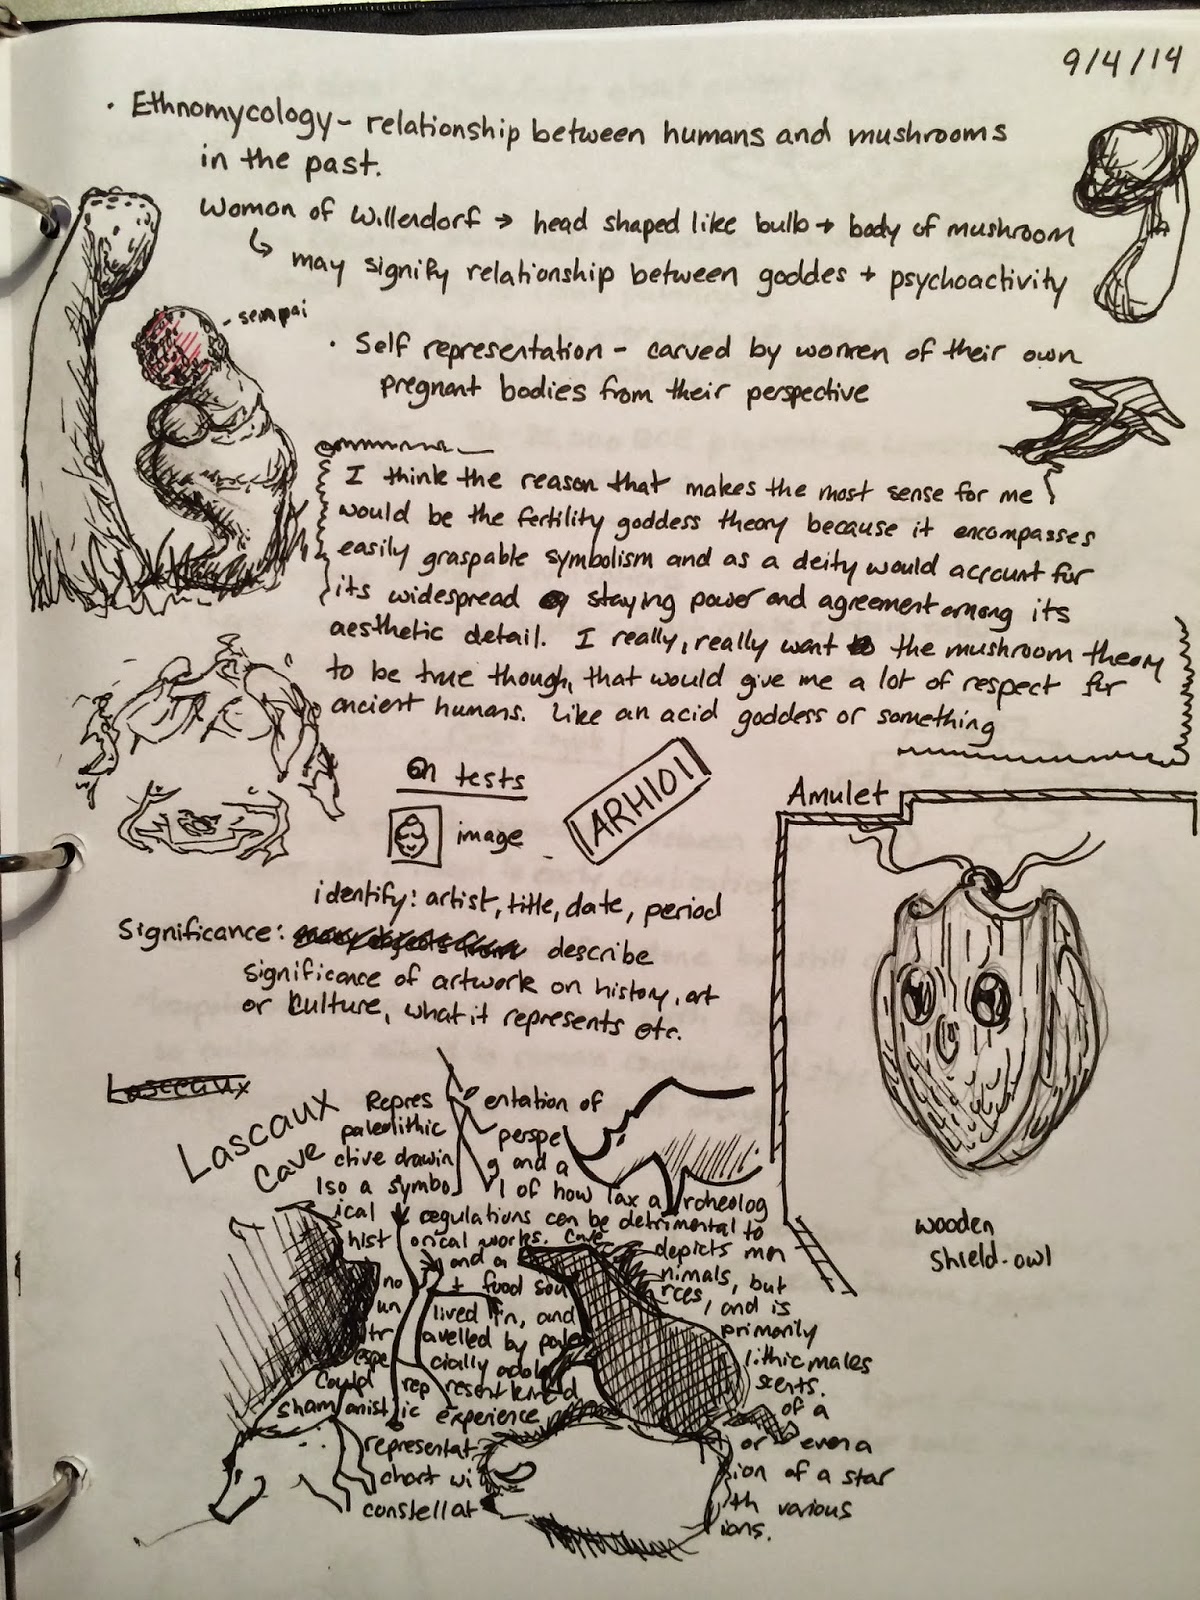 9/4/14
· Ethnomycology - relationship between humans and mushrooms
in the past.
Woman of Willendorf → head shaped like bulb + body of mushroom
↳ may signify relationship between goddes + psychoactivity
- sempai
· Self representation - carved by women of their own
pregnant bodies from their perspective
I think the reason that makes the most sense for me
would be the fertility goddess theory because it encompasses
easily graspable symbolism and as a deity would account for
its widespread staying power and agreement among its
aesthetic detail. I really, really want the mushroom theory
to be true though, that would give me a lot of respect for
ancient humans. Like an acid goddess or something
On tests
image
ARH101
identify: artist, title, date, period
Significance: describe
significance of artwork on history, art
or kulture, what it represents etc.
Amulet
wooden
shield-owl
Lasceaux
Lascaux
Cave
Repres entation of
paleolithic perspe
ctive drawin g and a
lso a symbo l of how lax a rcheolog
ical regulations can be detrimental to
hist orical works. Cave
depicts men
and a nimals, but
no + food sou rces, and is
un lived in, and primarily
tr avelled by paleo lithic males
espe cially adole scents.
Could rep resent of a
sham anist ic experience or even a
representat ion of a star
chart wi th various
constellat ions.